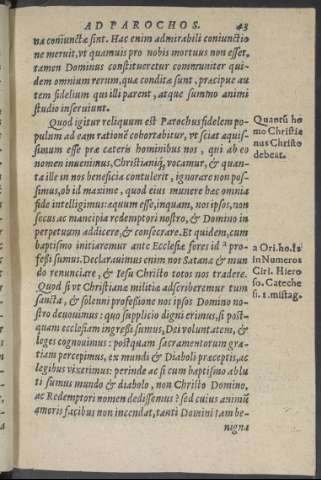 AD PAROCHOS. 43
na coniunctæ sint. Hac enim admirabili coniunctio
ne meruit, vt quamuis pro nobis mortuus non esset,
tamen Dominus constitueretur communiter qui-
dem omnium rerum, quæ conditæ sunt, præcipue au
tem fidelium qui illi parent, atque summo animi
studio inseruiunt.
Quod igitur reliquum est Parochus fidelem po-
pulum ad eam rationē cohortabitur, vt sciat æquis-
simum esse præ cæteris hominibus nos, qui ab eo
nomen inuenimus, Christianiq́; vocamur, & quan-
ta ille in nos beneficia contulerit, ignorare non pos-
simus, ob id maxime, quod eius munere hæc omnia
fide intelligimus: æquum esse, inquam, nos ipsos, non
secus ac mancipia redemptori nostro, & Domino in
perpetuum addicere, & consecrare. Et quidem, cum
baptismo initiaremur ante Ecclesiæ fores id a pro-
fessi sumus. Declarauimus enim nos Satanæ & mun
do renunciare, & Iesu Christo totos nos tradere.
Quod si vt Christianæ militiæ adscriberemur tam
sancta, & solenni professione nos ipsos Domino no-
stro deuouimus: quo supplicio digni erimus, si post-
quam ecclesiam ingressi sumus, Dei voluntatem, &
leges cognouimus: postquam sacramentorum gra-
tiam percepimus, ex mundi & Diaboli præceptis, ac
legibus vixerimus: perinde ac si cum baptismo ablu
ti sumus mundo & diabolo, non Christo Domino,
ac Redemptori nomen dedissemus? sed cuius animū
amoris facibus non incendat, tanti Domini tam be-
nigna
Quantū ho
mo Christia
nus Christo
debeat.
a Ori. ho. 12
in Numeros
Ciri. Hiero
so. Cateche
si. 1. mistag.